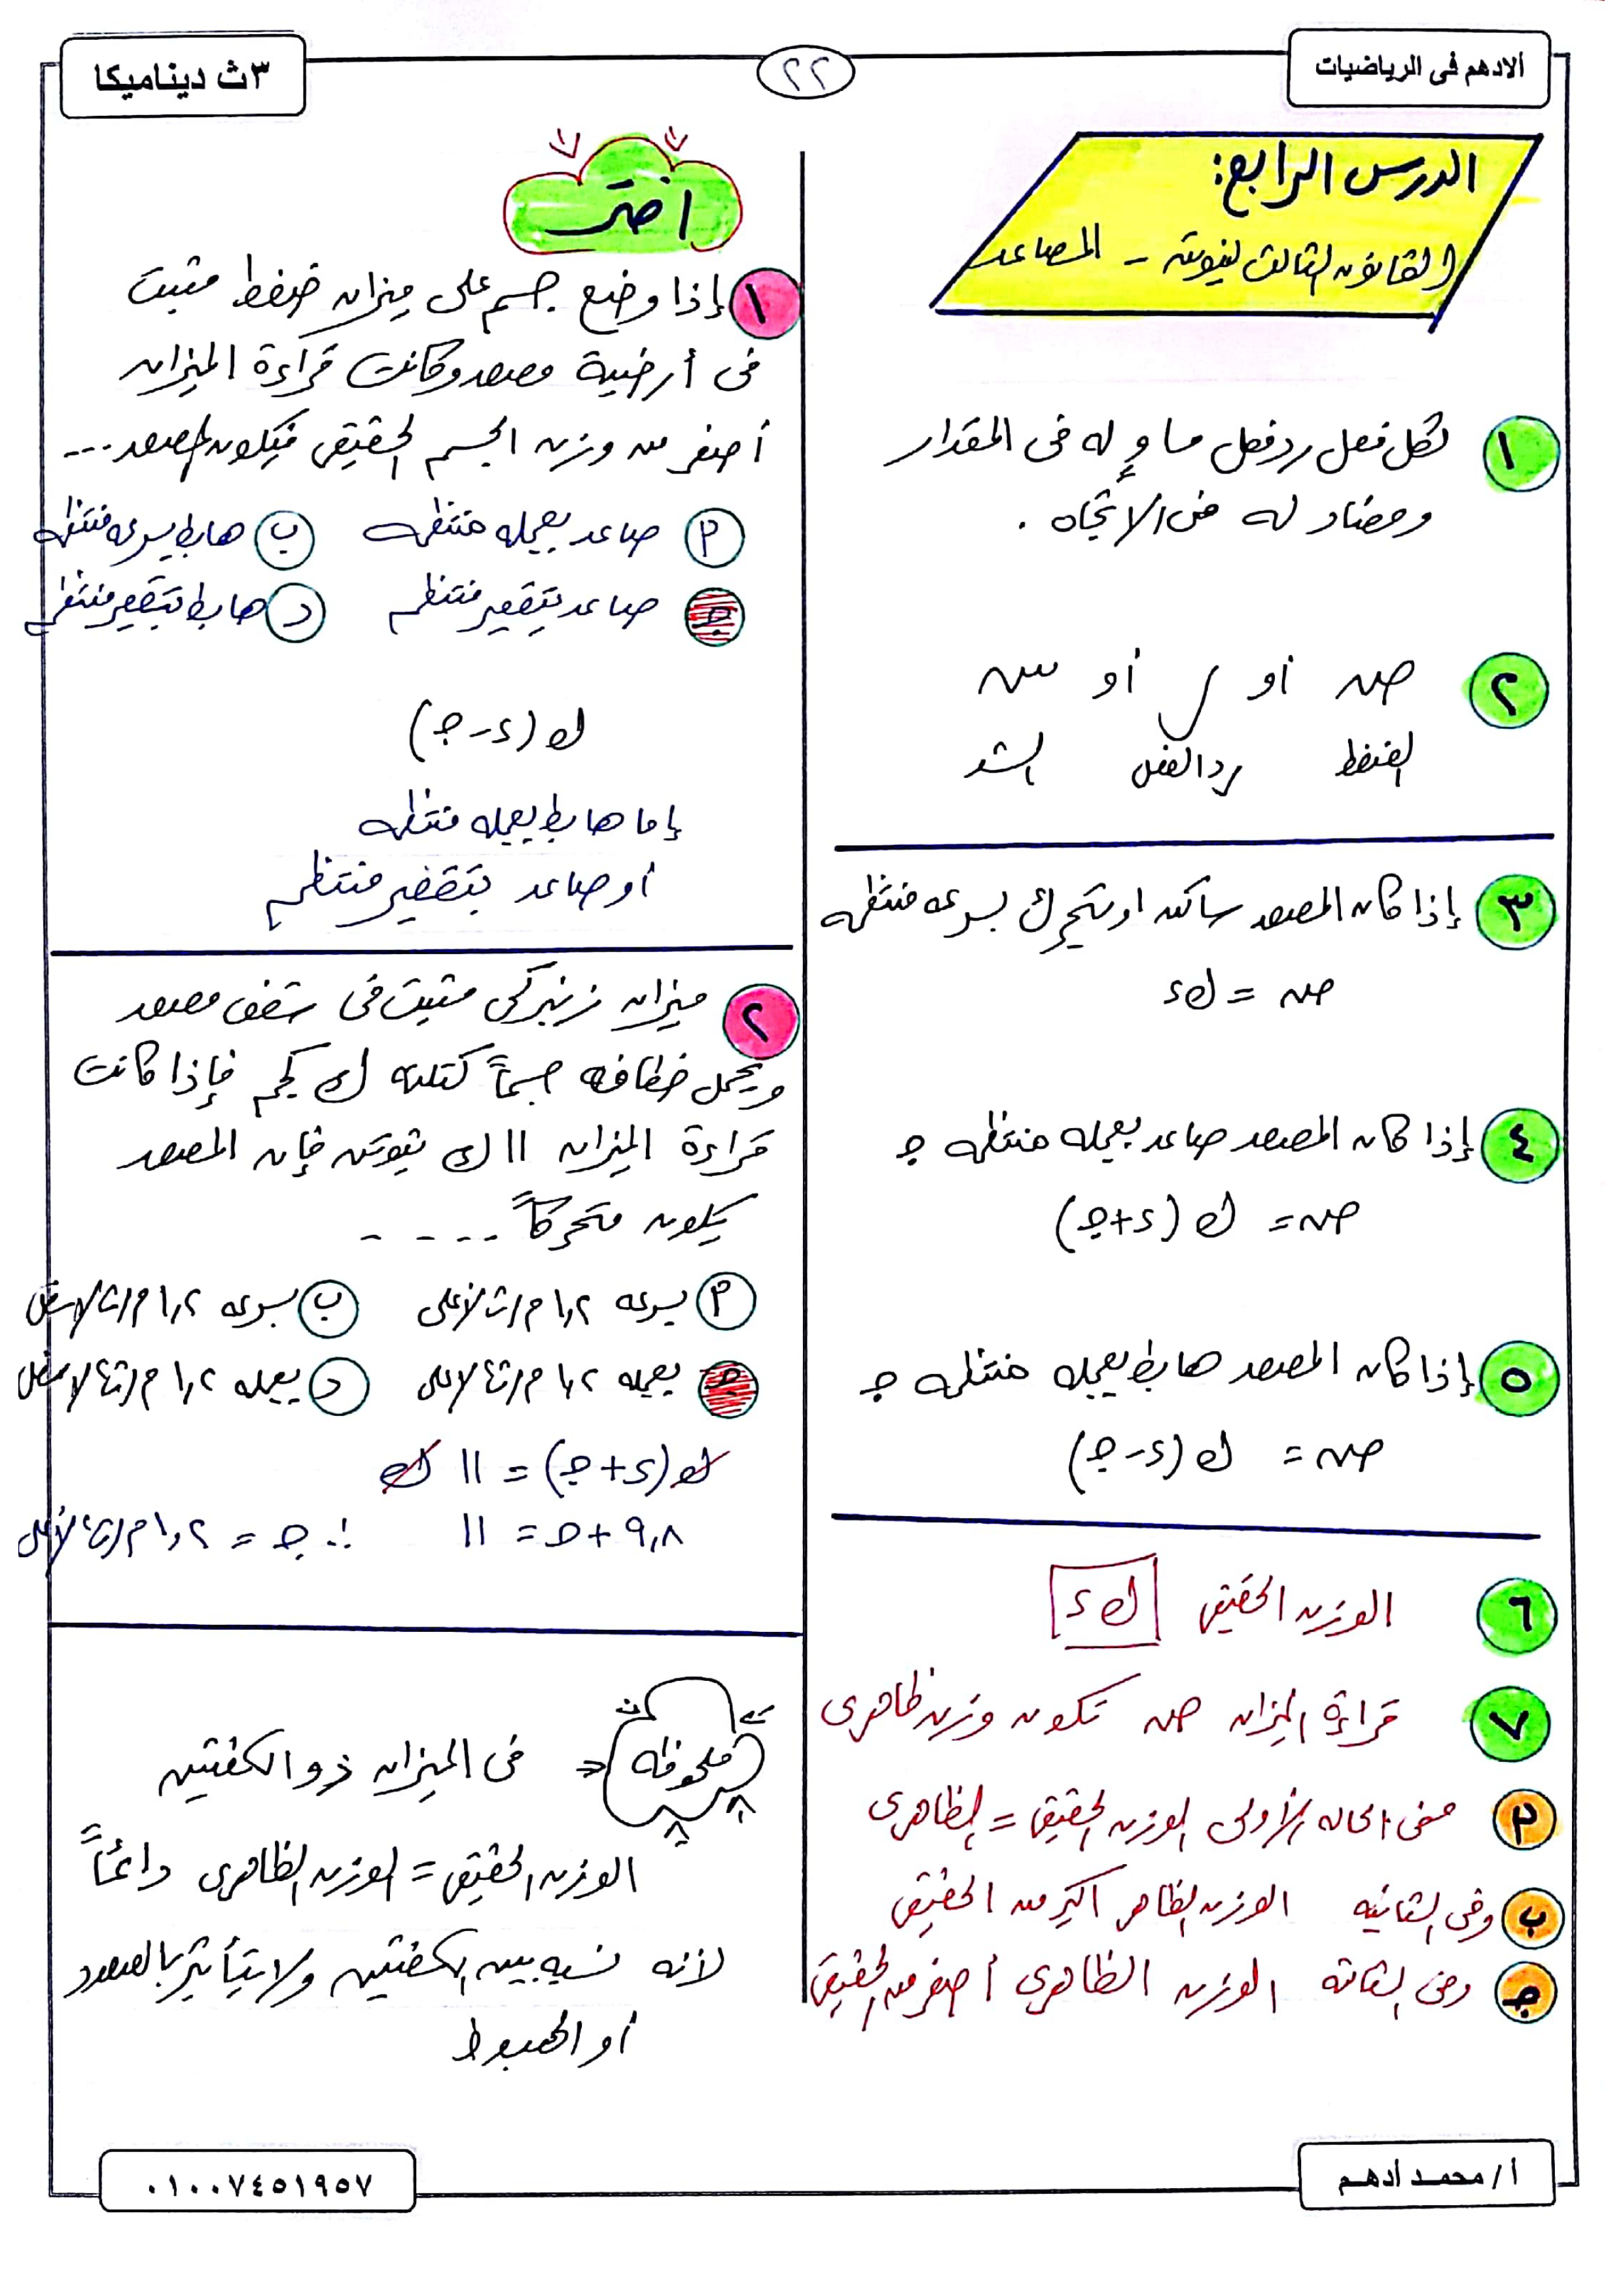 ألادهم فى الرياضيات
٢٢
٣ث ديناميكا
الدرس الرابع:
القانون الثالث لنيوتن - المصاعد
١ لكل فعل رد فعل مساوٍ له فى المقدار
ومضاد له فى الإتجاه .
٢ ضـ أو ر أو شـ
الضغط رد الفعل الشد
٣ إذا كان المصعد ساكن او يتحرك بسرعه منتظمه
ضـ = ك ء
٤ إذا كان المصعد صاعد بعجله منتظمه جـ
ضـ = ك (ء + جـ)
٥ إذا كان المصعد هابط بعجله منتظمه جـ
ضـ = ك (ء - جـ)
٦ الوزن الحقيقى ك ء
٧ قراءة الميزان ضـ تكون وزن ظاهرى
أ ففى الحاله الأولى الوزن الحقيقى = الظاهرى
ب وفى الثانيه الوزن الظاهر اكبر من الحقيقى
جـ وفى الثالثه الوزن الظاهرى أصغر من الحقيقى
اختر
١ إذا وضع جسم على ميزان ضغط مثبت
فى أرضية مصعد وكانت قراءة الميزان
أصغر من وزن الجسم الحقيقى فيكون المصعد ...
أ صاعد بعجله منتظمه ب هابط بسرعه منتظمه
جـ صاعد بتقصير منتظم د هابط بتقصير منتظم
ك (ء - جـ)
إما هابط بعجله منتظمه
أو صاعد بتقصير منتظم
٢ ميزان زنبركى مثبت فى سقف مصعد
ويحمل خطافه جسماً كتلته ك كجم فإذا كانت
قراءة الميزان ١١ ك نيوتن فإن المصعد
يكون متحركاً . . . . .
أ بسرعه ١,٢ م/ث لأعلى ب بسرعه ١,٢ م/ث لأسفل
جـ بعجله ١,٢ م/ث٢ لأعلى د بعجله ١,٢ م/ث٢ لأسفل
ك (ء + جـ) = ١١ ك
٩,٨ + جـ = ١١ ∴ جـ = ١,٢ م/ث٢ لأعلى
ملحوظه
فى الميزان ذو الكفتين
الوزن الحقيقى = الوزن الظاهرى دائماً
لأنه نسبه بين الكفتين ولا يتأثر بالصعود
أو الهبوط
أ/ محمد أدهم
٠١٠٠٧٤٥١٩٥٧